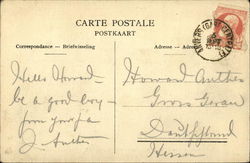 CARTE POSTALE
POSTKAART
Correspondance — Briefwisseling
Adresse — Adres
Hello Howard —
be a good boy —
from your pa
J. Anthes
Howard Anthes
Gross Gerau
Deutschland
Hessen